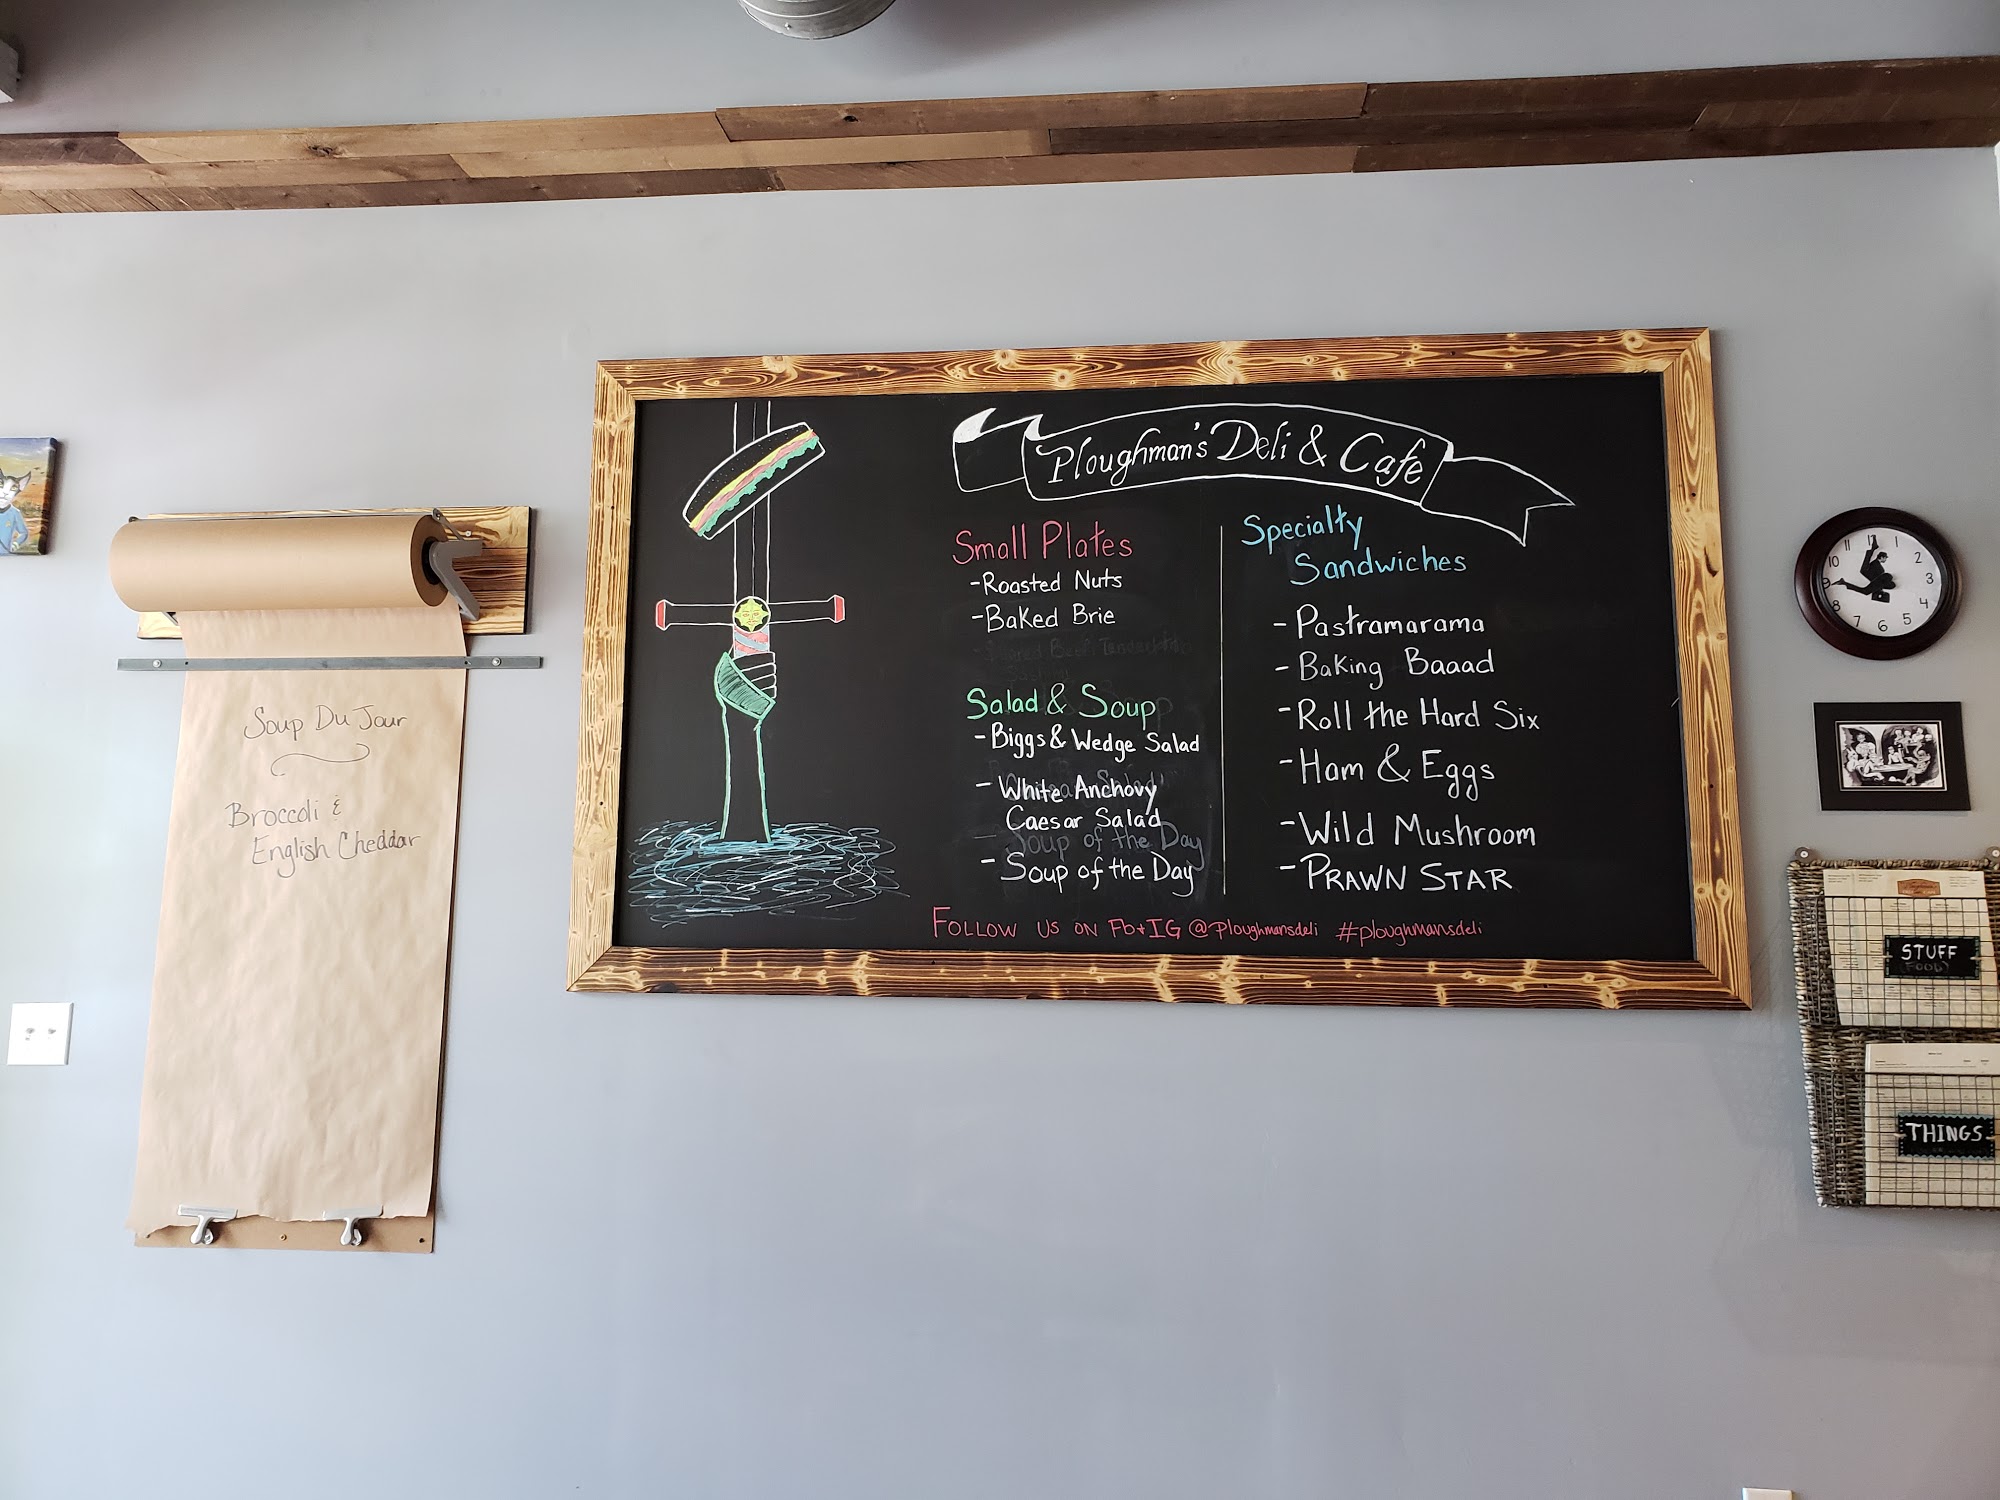 Soup Du Jour
Broccoli &
English Cheddar
Ploughman's Deli & Cafe
Small Plates
- Roasted Nuts
- Baked Brie
Salad & Soup
- Biggs & Wedge Salad
- White Anchovy
Caesar Salad
- Soup of the Day
Specialty
Sandwiches
- Pastramarama
- Baking Baaad
- Roll the Hard Six
- Ham & Eggs
- Wild Mushroom
- PRAWN STAR
FOLLOW US ON Fb+IG @Ploughmansdeli #ploughmansdeli
1
2
3
4
5
6
7
8
9
10
STUFF
(FOOD)
THINGS